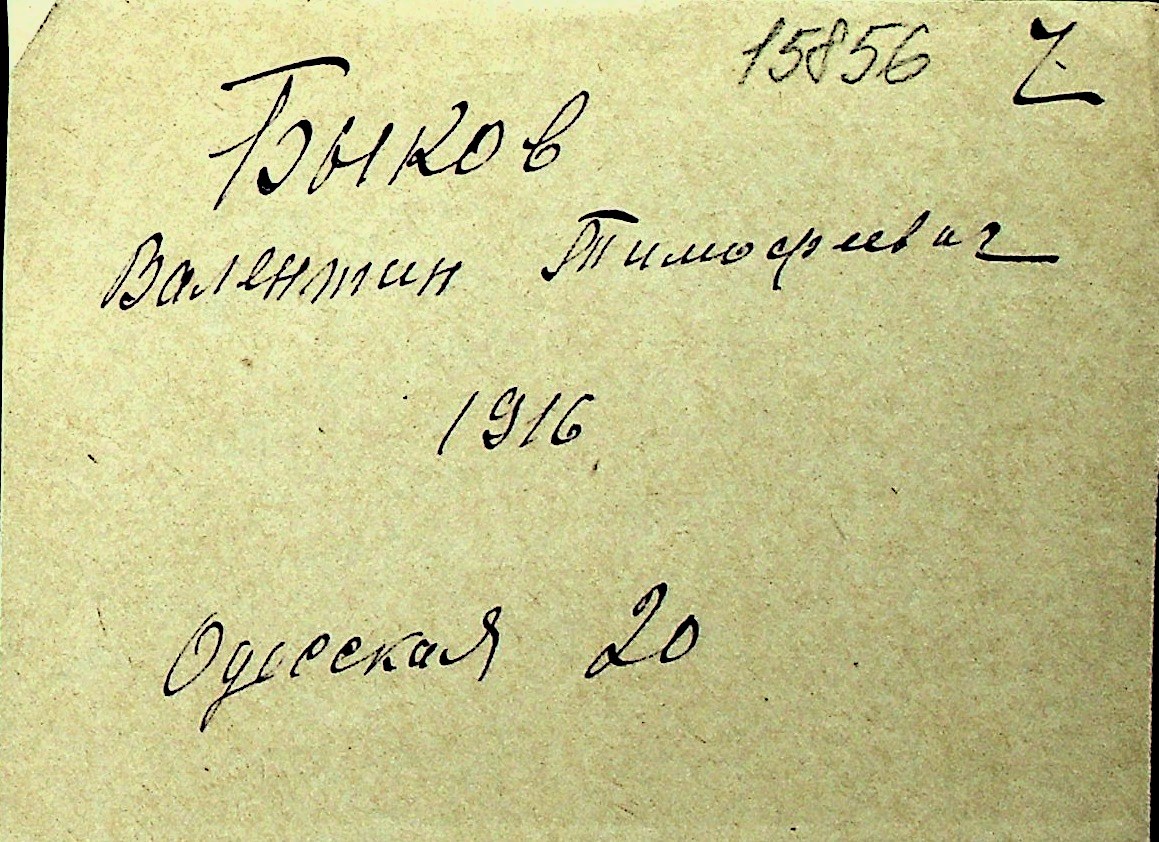 15856
Быков
Валентин Тимофеевич
1916
Одесская 20